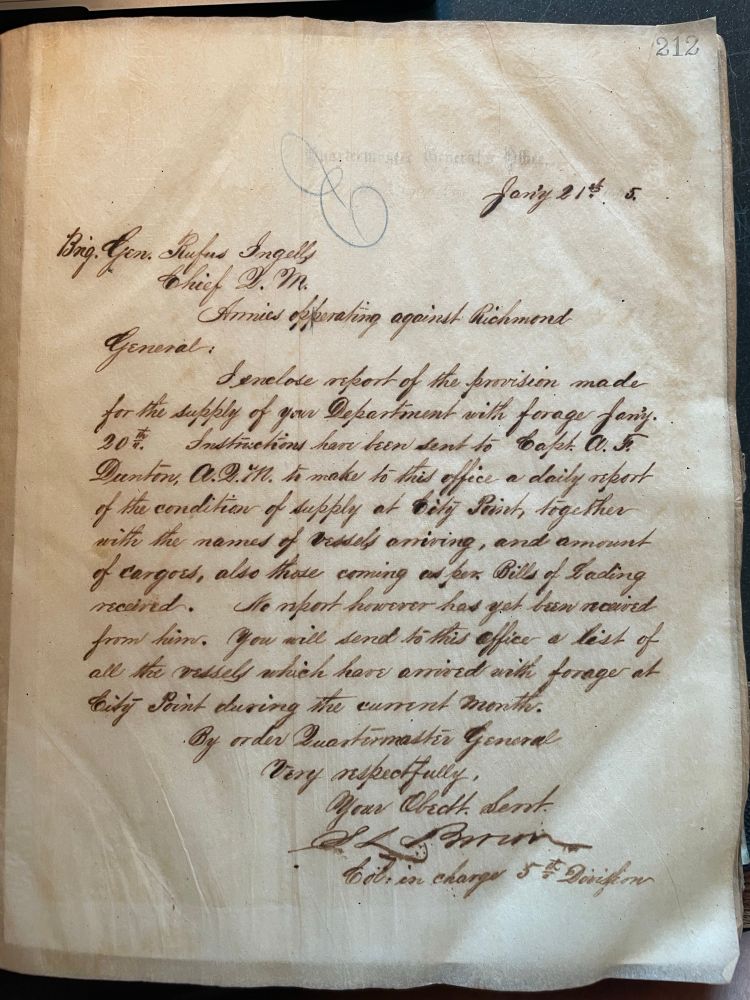 212
Quartermaster General's Office,
Jan'y 21st. 5.
Brig. Gen. Rufus Ingalls
Chief Q. M.
Armies opperating against Richmond
General:
I enclose report of the provision made
for the supply of your Department with forage Jany.
20th. Instructions have been sent to Capt. A. F.
Dunton, A.Q.M. to make to this office a daily report
of the condition of supply at City Point, together
with the names of vessels arriving, and amount
of cargoes, also those coming as per Bills of Lading
received. No report however has yet been received
from him. You will send to this office a list of
all the vessels which have arrived with forage at
City Point during the current month.
By order Quartermaster General
Very respectfully,
Your Obedt. Servt.
S L Brown
Col. in charge 5th Division